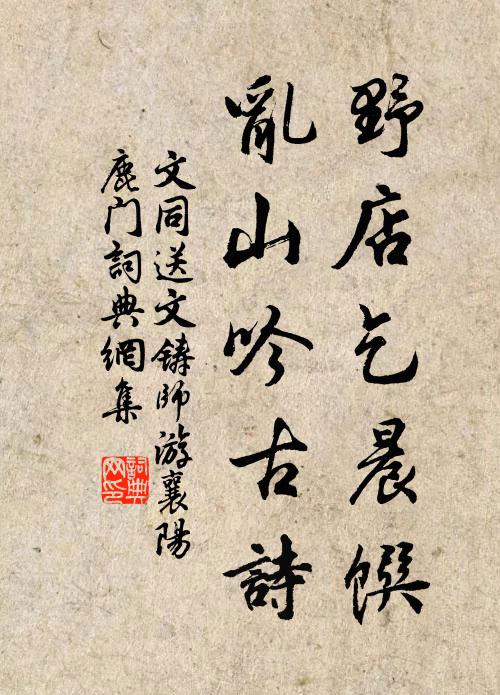 野店乞晨馔
亂山吟古詩
文同送文鑄師游襄陽
鹿门詞典網集
詞典网印